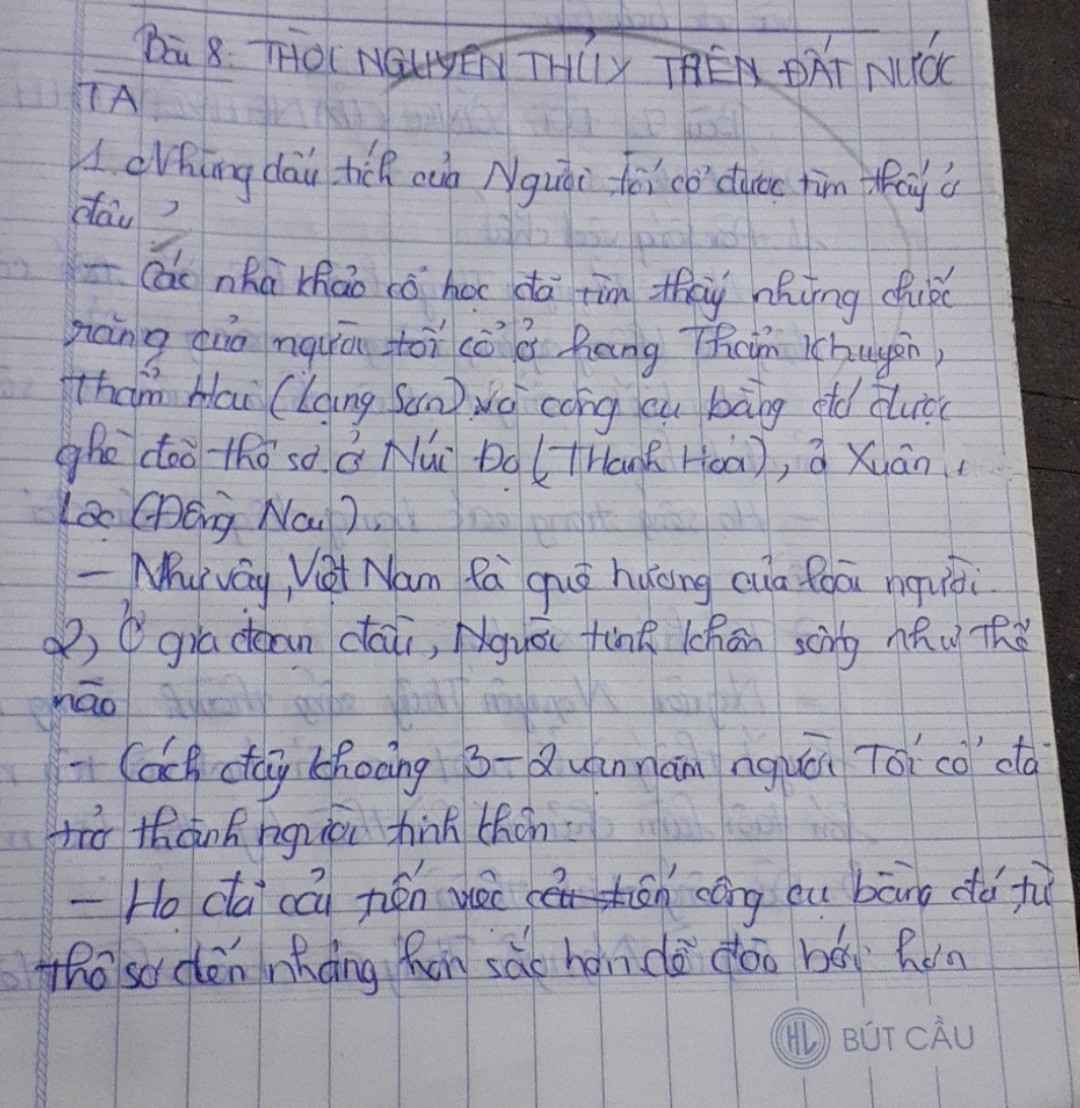 Bài 8: THỜI NGUYÊN THỦY TRÊN ĐẤT NƯỚC
TA
1. Những dấu tích của Người tối cổ được tìm thấy ở
đâu?
- Các nhà khảo cổ học đã tìm thấy những chiếc
răng của người tối cổ ở hang Thẩm Khuyên,
Thẩm Hai (Lạng Sơn) và công cụ bằng đá được
ghè đẽo thô sơ ở Núi Đọ (THanh Hoá), ở Xuân
Lộc (Đồng Nai).
- Như vậy, Việt Nam là quê hương của loài người.
2) Ở gia đoạn đầu, Người tinh khôn sống như thế
nào
- Cách đây khoảng 3-2 vạn năm người Tối cổ đã
trở thành người tinh khôn.
- Họ đã cải tiến việc cải tiến công cụ bằng đá từ
thô sơ đến nhẵng hơn sắc hơn để đào bới hơn
HL BÚT CẦU